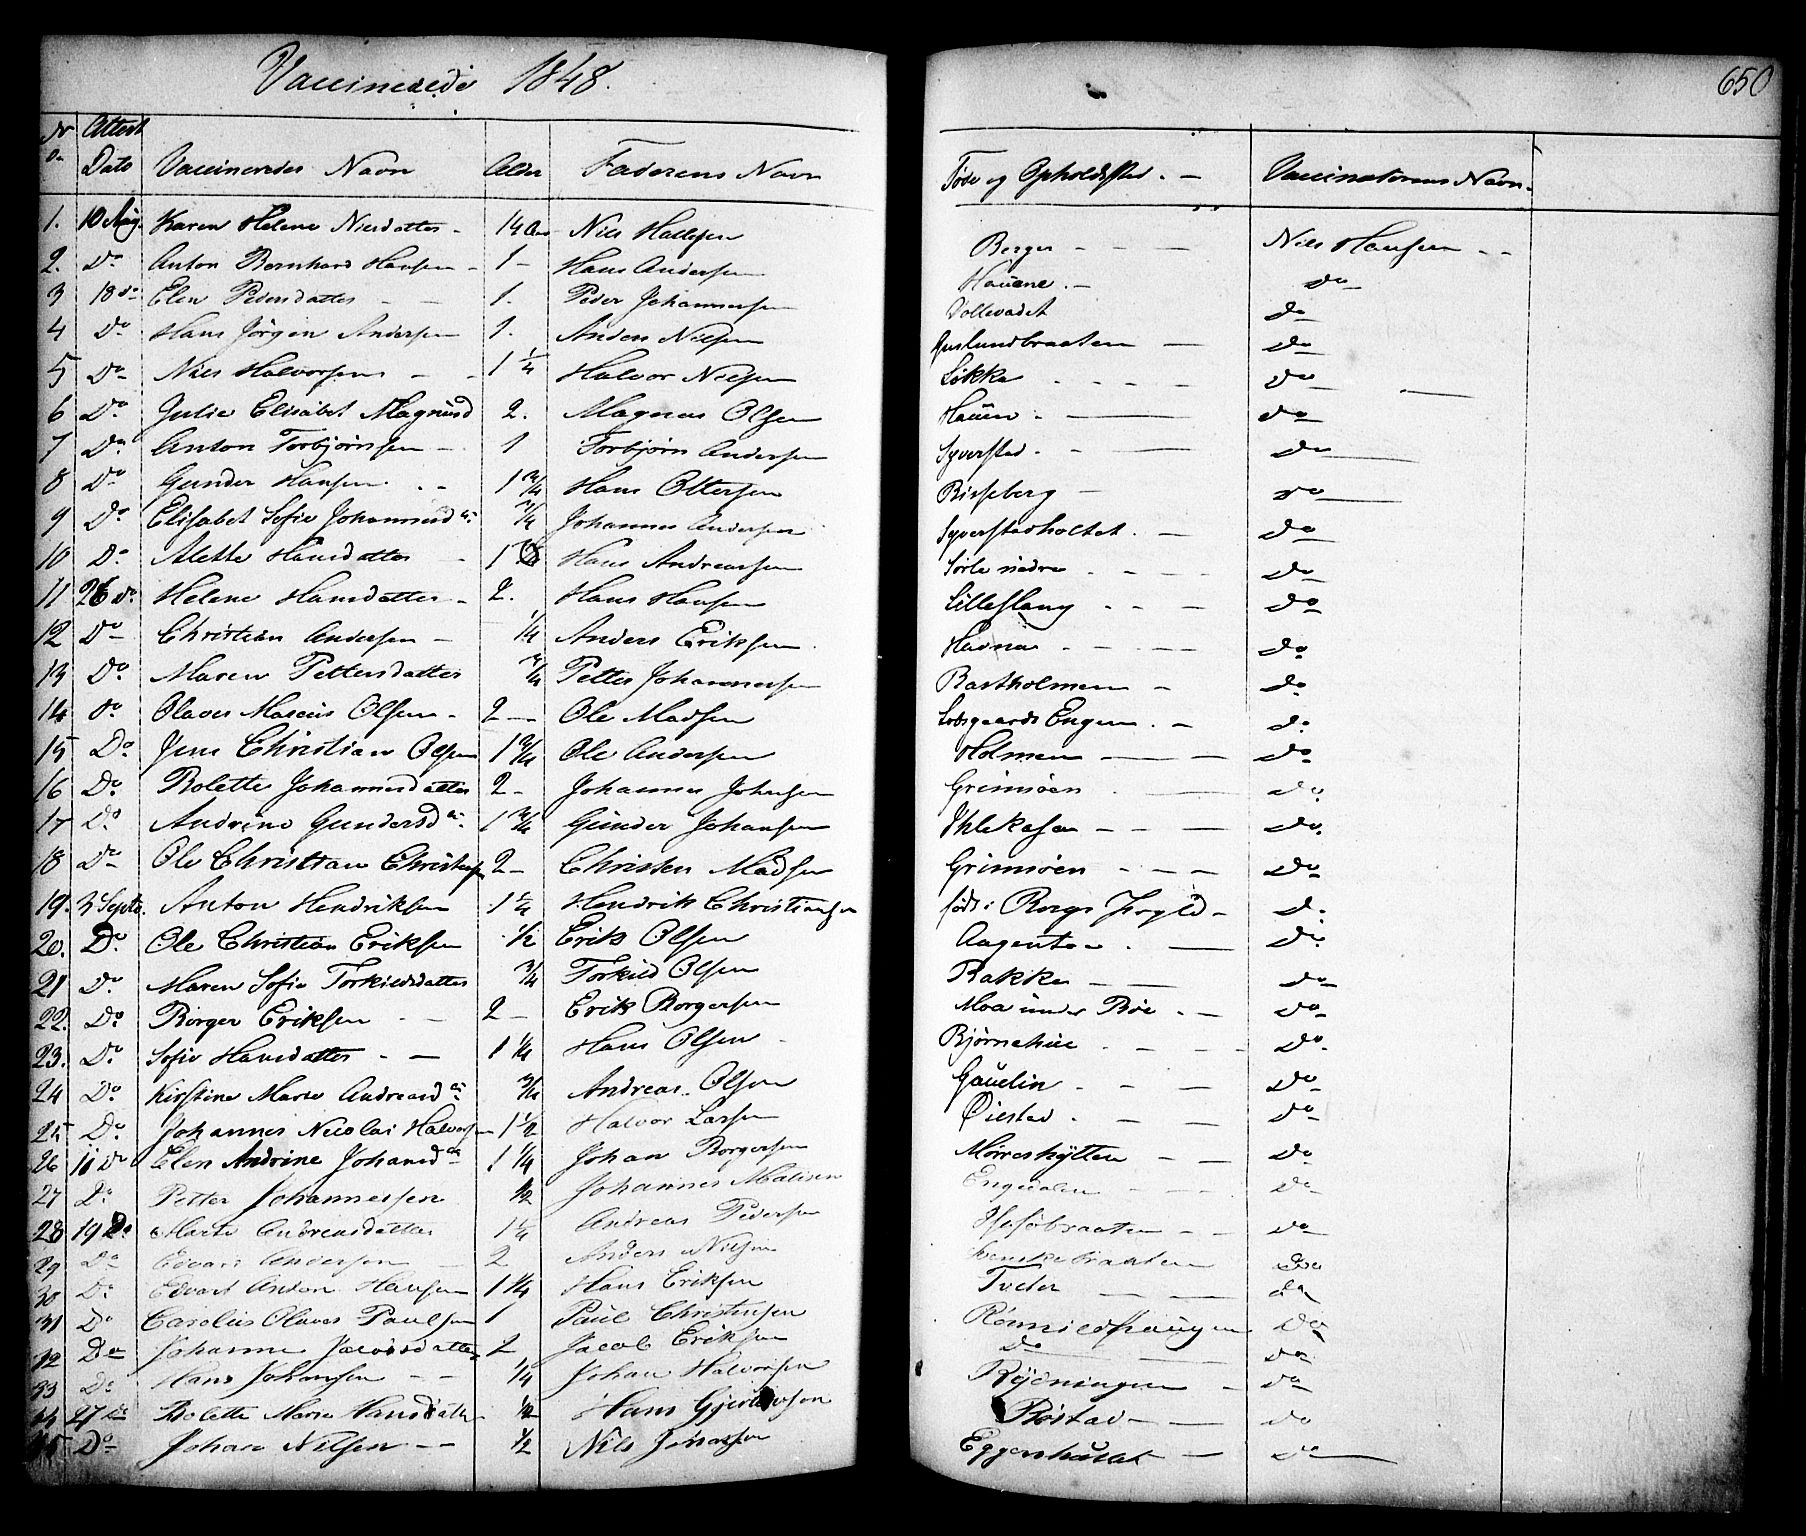 Vaccinerede 1848.
650
No Attest Dato Vaccineredes Navn Alder Faderens Navn Føde og Opholdssted. Vaccinatorens Navn.
1. 10 Aug. Karen Helene Nilsdatter 14 Aar Nils Halvsen Berger Nils Hansen
2. Do Anton Bernhard Hansen 1 Hans Andersen Hauene. Do
3 18 do Elen Pedersdatter 1. Peder Johannesen Vollevadet Do
4 Do Hans Jörgen Andersen 1. Anders Nilsen Guslundbraaten Do
5 Do Nils Halvorsen 1 1/4 Halvor Nilsen Løkke Do
6 Do Julie Elisabet Magnusd 2. Magnus Olsen Hauen Do
7 Do Anton Torbjørnsen 1 Torbjørn Andersen Syverstad. Do
8 Do Gunder Hansen. 1 3/4 Hans Ottersen Birseberg Do
9 Do Elisabet Sofie Johannesd. 3/4 Johannes Andersen Syverstadholtet. Do
10 Do Alette Hansdatter 1 Hans Andreassen Sørle nedre Do
11 26 do Helene Hansdatter 2. Hans Hansen Lilleslang Do
12 Do Christian Andersen 1/4 Anders Eriksen. Havna Do
13 Do Maren Pettersdatter 3/4 Petter Johannesen Bartholmen Do
14 Do Olaves Marcus Olsen 2 Ole Madsen Engen. Do
15 Do Jens Christian Olsen 1 3/4 Ole Andersen Holmen Do
16 Do Bolette Johannesdatter 2 Johannes Johnsen Grimsöen Do
17 Do Andrine Gundersd. 1 3/4 Gunder Johansen Ihlekasa Do.
18 Do Ole Christian Christensen 2 Christen Madsen Grimsöen Do
19. 3 Septb. Anton Hendriksen 1 1/4 Hendrik Christiansen født i Borge Prgld Do
20. Do Ole Christian Eriksen 1/2 Erik Olsen Aagenton Do
21 Do Maren Sofie Torkildsdatter 3/4 Torkild Olsen Bakke Do
22. Do Borger Eriksen 2 Erik Borgersen Moa under Böe. Do
23. Do Sofie Hansdatter 1 1/4 Hans Olsen Bjørnehue Do
24 Do Kirstine Marie Andreasd. 3/4 Andreas Olsen Gaudin Do
25 Do Johannes Nicolai Halvorsen 1 1/2 Halvor Larsen Øiestad. Do
26 10 Do Elen Andrine Johansd. 1 1/4 Johan Borgersen Mørreskytten Do
27 Do Petter Johannessen 1/2 Johannes Madsen Engedalen Do
28 19 Do Marte Andreasdatter 1 1/4 Andreas Pedersen Do
29 Do Edvart Andersen 2 Anders Nilsen Svenskebraaten Do
30 Do Edvart Anton Hansen 1 1/4 Hans Eriksen Tveter Do
31 Do Carolus Olaves Paulsen 1 Paul Christensen Rönnildhaugen Do
32 Do Johanne Jacobsdatter 2 Jacob Eriksen Do Do
33 Do Hans Johansen 1/4 Johan Halvorsen Rydningen Do
34 27 do Bolette Marie Hansdatter 1/2 Hans Gjertsen Bøstad Do
35 Do Johan Nilsen 1/2 Nils Jonassen Eggerhuset Do